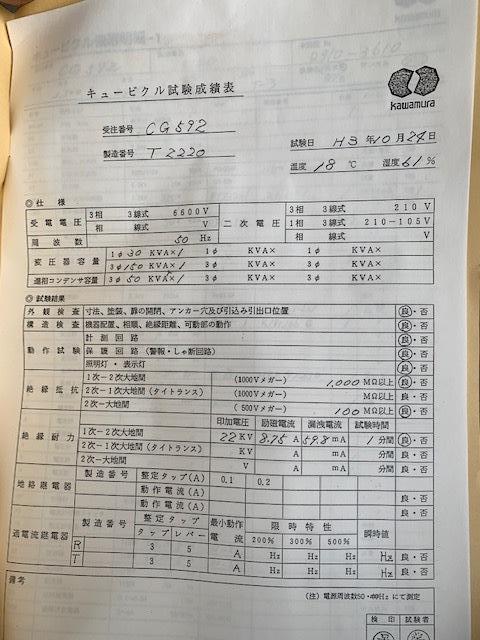 キュービクル試験成績表
kawamura
受注番号 CG592
製造番号 T2220
試験日 H3年10月24日
温度 18 ℃ 湿度 61 %
◎仕様
受電電圧 3相 3線式 6600V 二次電圧 3相 3線式 210V
相 線式 V 1相 3線式 210-105V
周波数 50 Hz 相 線式 V
変圧器容量 1φ30 KVA×1 1φ KVA× 1φ KVA×
3φ150 KVA×1 3φ KVA× 3φ KVA×
進相コンデンサ容量 3φ50 KVA×1 3φ KVA× 3φ KVA×
◎試験結果
外観検査 寸法、塗装、扉の開閉、アンカー穴及び引込み引出口位置 良・否
構造検査 機器配置、相順、絶縁距離、可動部の動作 良・否
動作試験 計測回路 良・否
保護回路(警報・しゃ断回路) 良・否
照明灯・表示灯 良・否
絶縁抵抗 1次-2次大地間 (1000Vメガー) 1,000 MΩ以上 良・否
2次-1次大地間(タイトランス) (1000Vメガー) MΩ以上 良・否
2次-大地間 (500Vメガー) 100 MΩ以上 良・否
絶縁耐力 印加電圧 励磁電流 漏洩電流 試験時間
1次-2次大地間 22 KV 8.75 A 59.8 mA 1 分間 良・否
2次-1次大地間(タイトランス) KV A mA 分間 良・否
2次-大地間 V A mA 分間 良・否
地絡継電器 製造番号 整定タップ(A) 0.1 0.2
動作電流(A) 良・否
動作電流(A) 良・否
過電流継電器 製造番号 整定 最小動作電流 限時特性 瞬時値
タップ レバー 200% 300% 500%
R 3 5 A Hz Hz Hz Hz 良・否
T 3 5 A Hz Hz Hz Hz 良・否
備考
(注)電源周波数50・Hzにて測定
検印 試験者